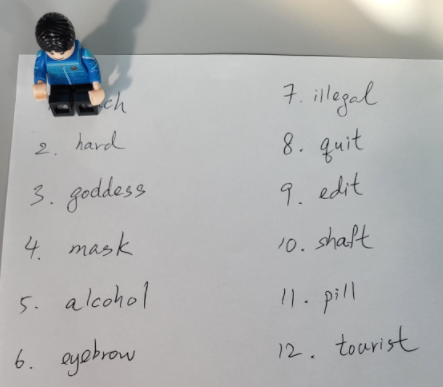 2. hard
3. goddess
4. mask
5. alcohol
6. eyebrow
7. illegal
8. quit
9. edit
10. shaft
11. pill
12. tourist